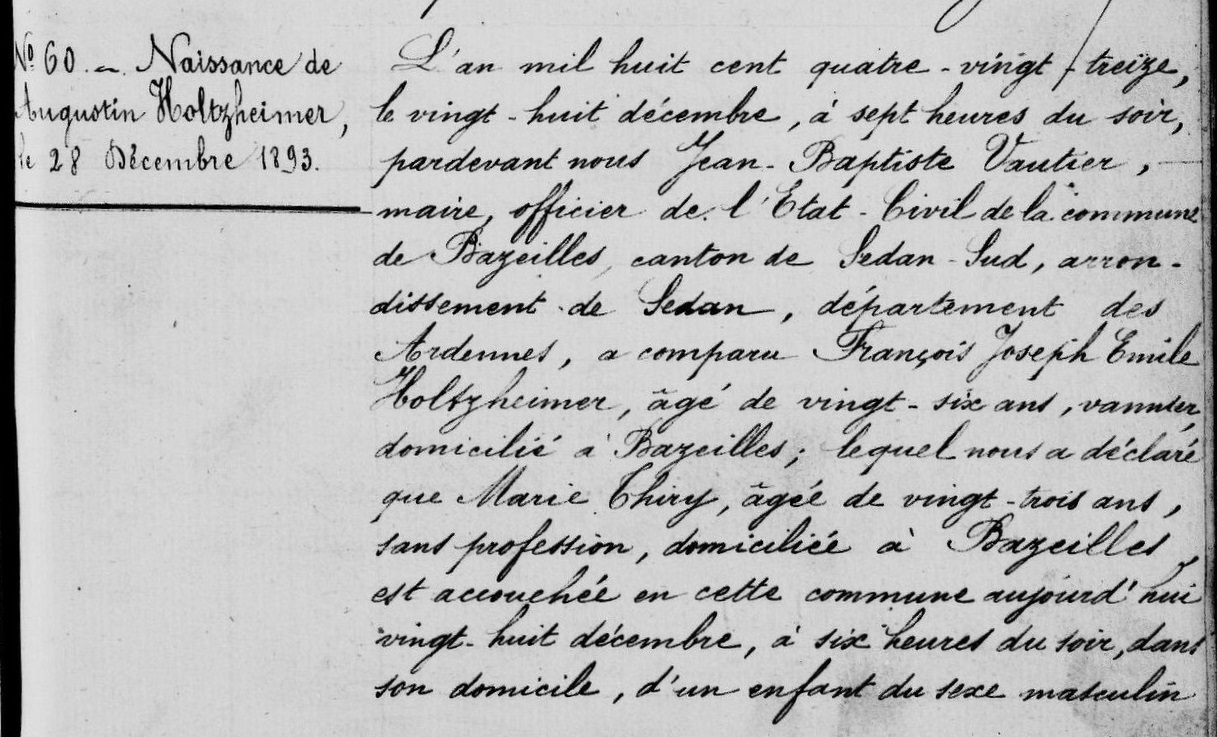 Nº 60. - Naissance de
Augustin Holtzheimer,
le 28 Décembre 1893.
L'an mil huit cent quatre-vingt-treize,
le vingt-huit décembre, à sept heures du soir,
pardevant nous Jean-Baptiste Vautier,
maire, officier de l'Etat-Civil de la commune
de Bazeilles, canton de Sedan-Sud, arron-
dissement de Sedan, département des
Ardennes, a comparu François Joseph Emile
Holtzheimer, âgé de vingt-six ans, vannier,
domicilié à Bazeilles; lequel nous a déclaré
que Marie Thiry, âgée de vingt-trois ans,
sans profession, domiciliée à Bazeilles,
est accouchée en cette commune aujourd'hui
vingt-huit décembre, à six heures du soir, dans
son domicile, d'un enfant du sexe masculin